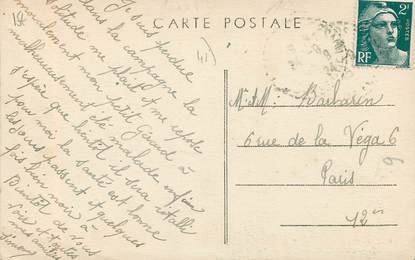 CARTE POSTALE
19
41
Je suis perdue
dans la campagne la
solitude me plait et me repose
moralement mon petit Giraud à
malheureusement été malade
j'espère que bientôt il sera rétabli
pour moi la santé est bonne
les jours passent et quelques
fois bien noir à
Bientôt de vous
voir
2F
POSTES
RF
M. M. Barbarin
6 rue de la Véga 6
Paris
12en
9